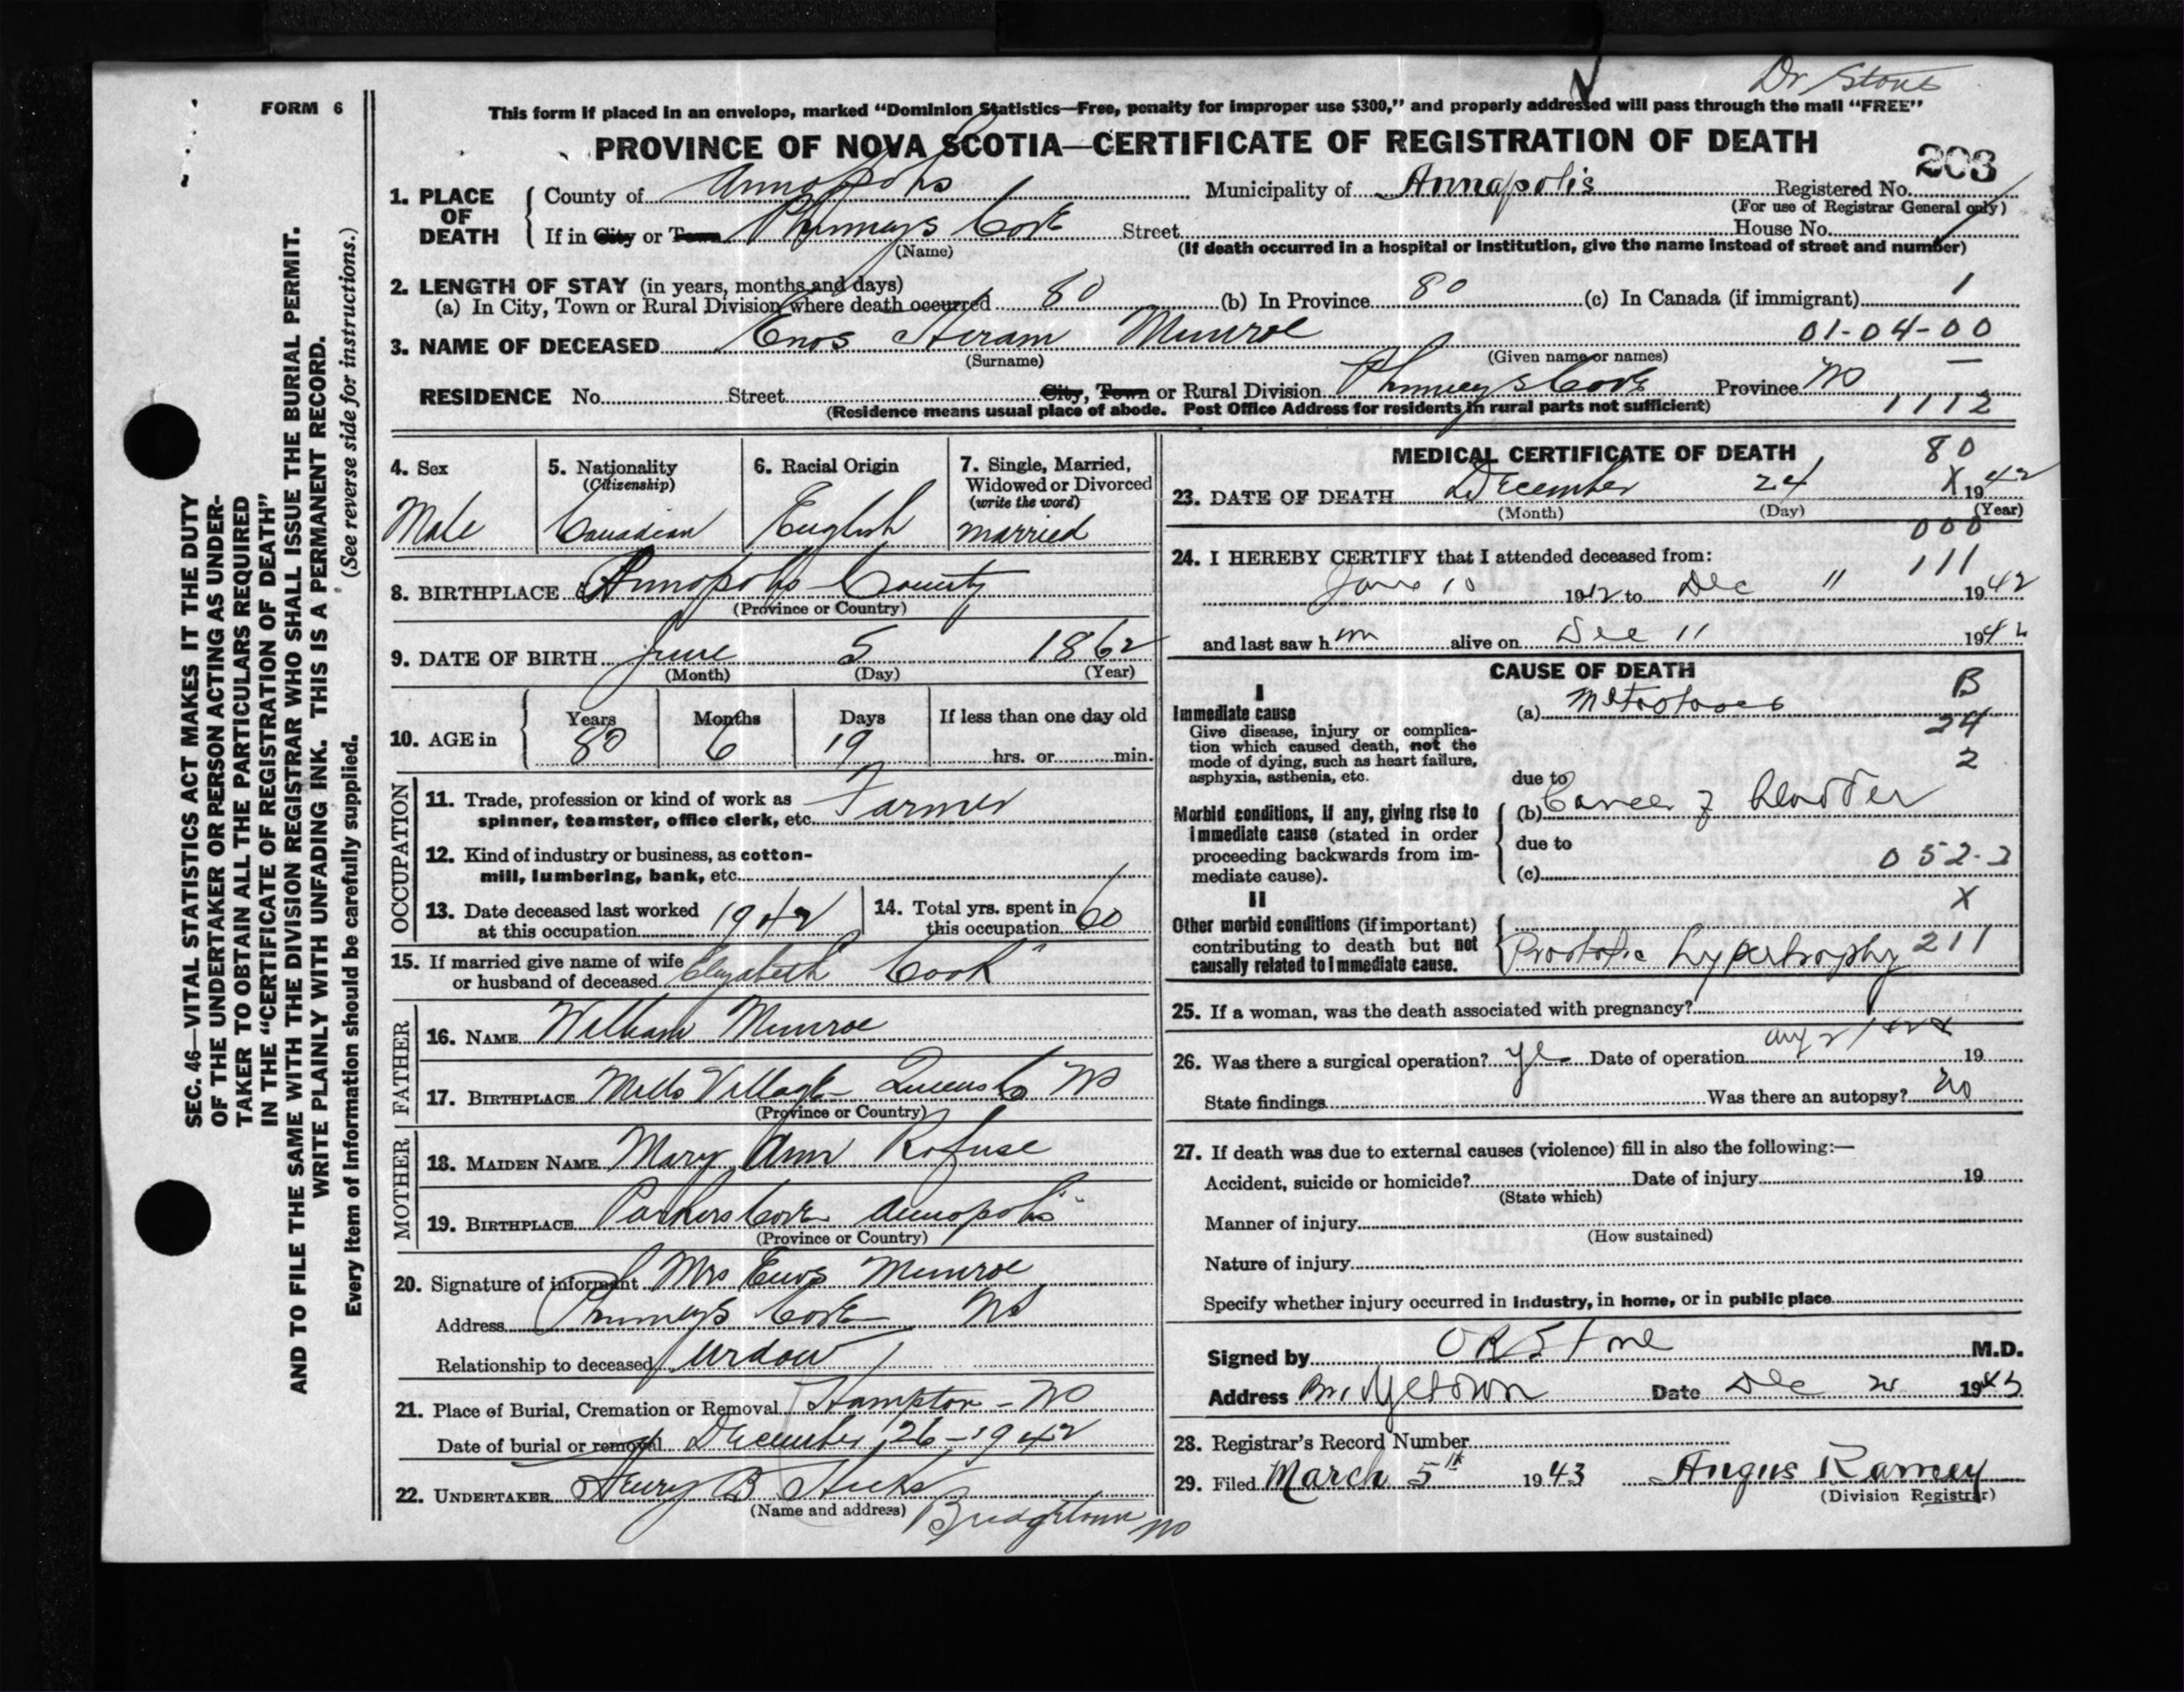 Dr Stone
FORM 6
This form if placed in an envelope, marked "Dominion Statistics—Free, penalty for improper use $300," and properly addressed will pass through the mail "FREE"
PROVINCE OF NOVA SCOTIA—CERTIFICATE OF REGISTRATION OF DEATH
203
1. PLACE OF DEATH
County of Annapolis Municipality of Annapolis Registered No.
(For use of Registrar General only)
If in City or Town Phinneys Cove Street House No.
(Name) (If death occurred in a hospital or institution, give the name instead of street and number)
2. LENGTH OF STAY (in years, months and days)
(a) In City, Town or Rural Division where death occurred 80 (b) In Province 80 (c) In Canada (if immigrant) 1
3. NAME OF DECEASED Enos Hiram Munroe 01-04-00
(Surname) (Given name or names)
RESIDENCE No. Street City, Town or Rural Division Phinneys Cove Province NS
(Residence means usual place of abode. Post Office Address for residents in rural parts not sufficient) 1112
4. Sex
Male
5. Nationality
(Citizenship)
Canadian
6. Racial Origin
English
7. Single, Married, Widowed or Divorced
(write the word)
married
8. BIRTHPLACE Annapolis County
(Province or Country)
9. DATE OF BIRTH June 5 1862
(Month) (Day) (Year)
10. AGE in
Years Months Days If less than one day old
80 6 19 hrs. or min.
OCCUPATION
11. Trade, profession or kind of work as
spinner, teamster, office clerk, etc. Farmer
12. Kind of industry or business, as cotton-
mill, lumbering, bank, etc.
13. Date deceased last worked
at this occupation 1942
14. Total yrs. spent in
this occupation 60
15. If married give name of wife
or husband of deceased Elizabeth Cook
FATHER
16. NAME William Munroe
17. BIRTHPLACE Mills Village Queens Co NS
(Province or Country)
MOTHER
18. MAIDEN NAME Mary Ann Rofuse
19. BIRTHPLACE Parkers Cove Annapolis
(Province or Country)
20. Signature of informant Mrs Enos Munroe
Address Phinneys Cove NS
Relationship to deceased Widow
21. Place of Burial, Cremation or Removal Hampton - NS
Date of burial or removal December 26 - 1942
22. UNDERTAKER Henry B Hicks
(Name and address) Bridgetown NS
MEDICAL CERTIFICATE OF DEATH
80
23. DATE OF DEATH December 24 X 1942
(Month) (Day) (Year)
000
24. I HEREBY CERTIFY that I attended deceased from:
111
June 10 1942 to Dec 11 1942
and last saw him alive on Dec 11 1942
CAUSE OF DEATH
I
Immediate cause
Give disease, injury or complica-
tion which caused death, not the
mode of dying, such as heart failure,
asphyxia, asthenia, etc.
(a) Metastases
B
24
2
due to
Morbid conditions, if any, giving rise to
immediate cause (stated in order
proceeding backwards from im-
mediate cause).
(b) Cancer of bladder
due to
(c) 052-2
X
II
Other morbid conditions (if important)
contributing to death but not
causally related to immediate cause.
Prostatic hypertrophy 211
25. If a woman, was the death associated with pregnancy?
26. Was there a surgical operation? yes Date of operation Aug 19
State findings Was there an autopsy? no
27. If death was due to external causes (violence) fill in also the following:—
Accident, suicide or homicide? Date of injury 19
(State which)
Manner of injury
(How sustained)
Nature of injury
Specify whether injury occurred in industry, in home, or in public place
Signed by O R Stone M.D.
Address Bridgetown Date Dec 1943
28. Registrar's Record Number
29. Filed March 5th 1943 Angus Ramey
(Division Registrar)
SEC. 46—VITAL STATISTICS ACT MAKES IT THE DUTY
OF THE UNDERTAKER OR PERSON ACTING AS UNDER-
TAKER TO OBTAIN ALL THE PARTICULARS REQUIRED
IN THE "CERTIFICATE OF REGISTRATION OF DEATH"
AND TO FILE THE SAME WITH THE DIVISION REGISTRAR WHO SHALL ISSUE THE BURIAL PERMIT.
WRITE PLAINLY WITH UNFADING INK. THIS IS A PERMANENT RECORD.
(See reverse side for instructions.)
Every item of information should be carefully supplied.